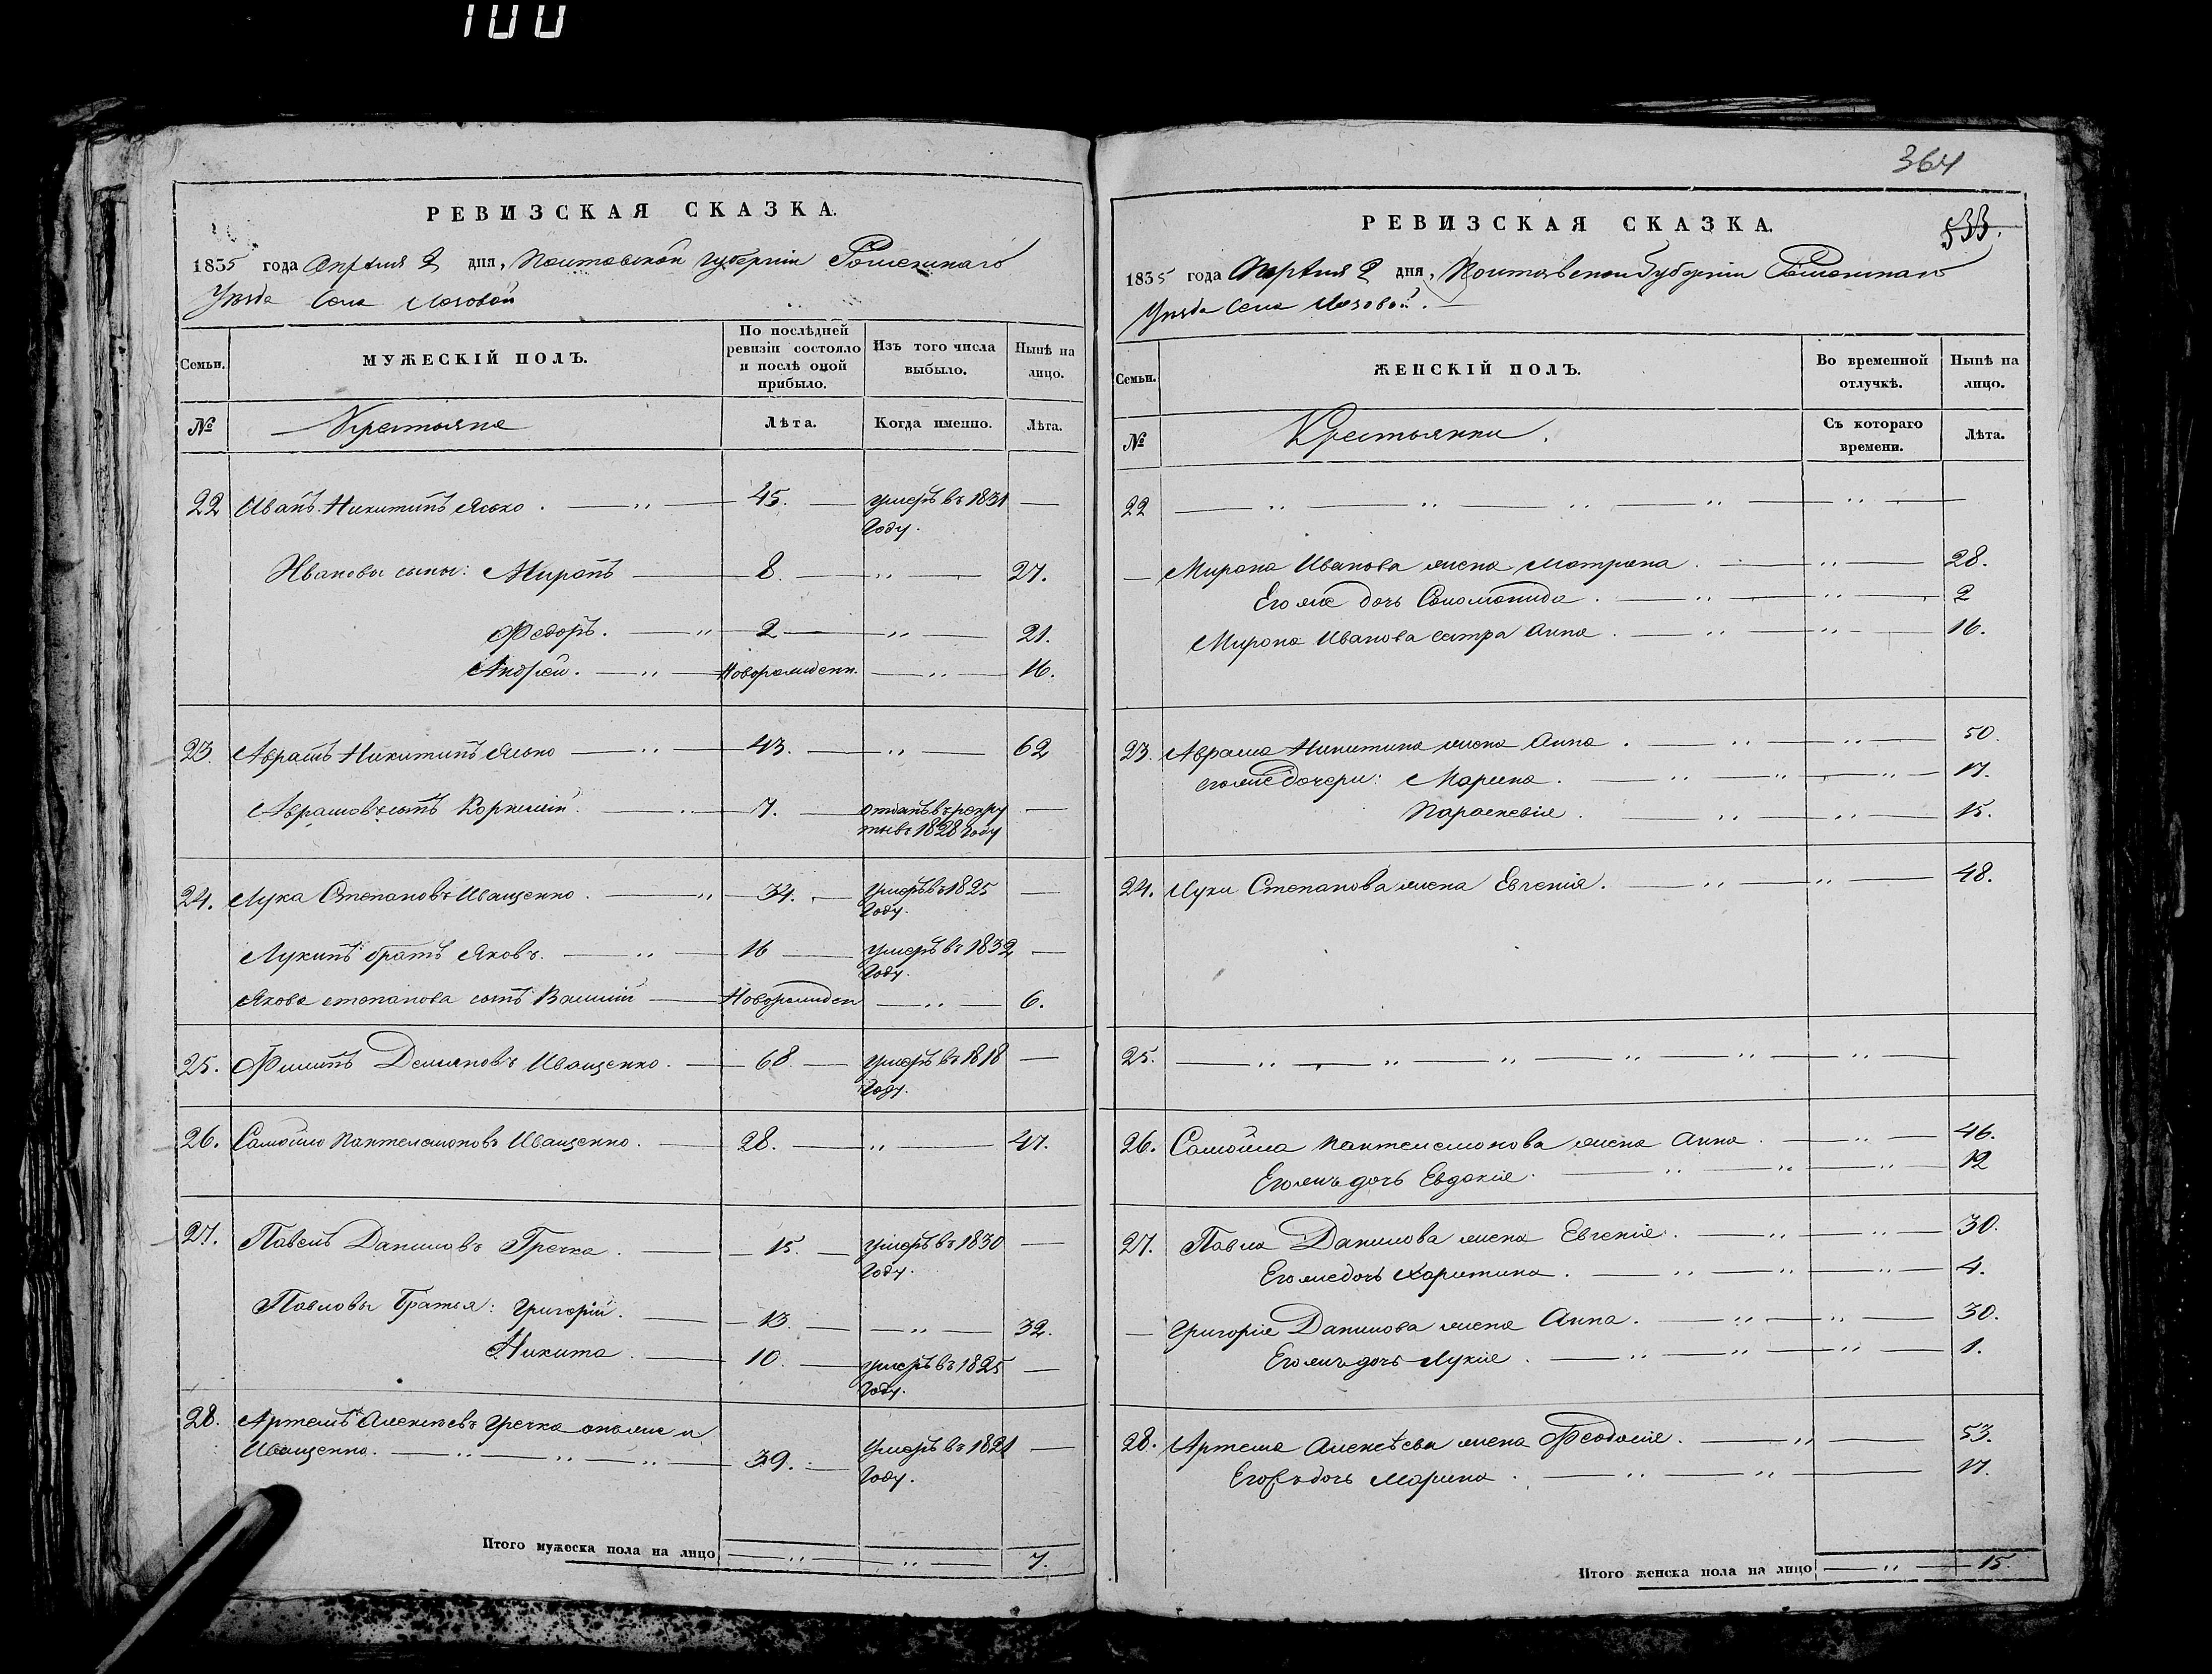 100
РЕВИЗСКАЯ СКАЗКА.
1835 года Апрѣля 2 дня, Полтавской губерніи Роменскаго
Уѣзда Села Лозовой
Семьи.
МУЖЕСКІЙ ПОЛЪ.
По послѣдней ревизіи состояло и послѣ оной прибыло.
Изъ того числа выбыло.
Нынѣ на лицо.
№
Крестьяне
Лѣта.
Когда именно.
Лѣта.
22 Иванъ Никитинъ Ясько 45. умеръ въ 1831
году.
Ивановы сыны: Миронъ 8. 27.
Федоръ. 2 21.
Андрей. Новорожденн. 16.
23. Аврамъ Никитинъ Ясько 43. 62
Аврамовъ сынъ Корнилій 7. отданъ въ рекру
ты въ 1828 году
24. Лука Степановъ Иващенко. 34. умеръ въ 1825
году.
Лукинъ братъ Яковъ. 16 умеръ въ 1832
году.
Якова степанова сынъ Василій Новорожден 6.
25. Филипъ Демяновъ Иващенко. 68. умеръ въ 1818
году.
26. Самойло Пантелемоновъ Иващенко. 28. 47.
27. Павелъ Даниловъ Гречка. 15. умеръ въ 1830
году.
Павловы Братья: Григорій. 13. 32.
Никита. 10. умеръ въ 1825
году.
28. Артемъ Алексѣевъ Гречка онъже и
Иващенко. 39. умеръ въ 1821
году.
Итого мужеска пола на лицо 7.
364
533.
РЕВИЗСКАЯ СКАЗКА.
1835 года Апрѣля 2 дня, Полтавской Губерніи Роменскаго
Уѣзда Села Лозовой.
Семьи.
ЖЕНСКІЙ ПОЛЪ.
Во временной отлучкѣ.
Нынѣ на лицо.
№
Крестьянки.
Съ котораго времени.
Лѣта.
22
Мирона Иванова жена Матрена. 28.
Его же дочь Соломонида. 2
Мирона Иванова сестра Анна. 16.
23. Аврама Никитина жена Анна. 50.
его же дочери: Марина. 17.
Параскевія. 15.
24. Луки Степанова жена Евгенія. 48.
25.
26. Самойла Пантелемонова жена Анна. 46.
Его жъ дочь Евдокія. 12
27. Павла Данилова жена Евгенія. 30.
Его же дочь Харитина. 4.
Григорія Данилова жена Анна. 30.
Его жъ дочь Лукія. 1.
28. Артема Алексѣева жена Феодосія. 53.
дочь Марина. 17.
Итого женска пола на лицо 15.